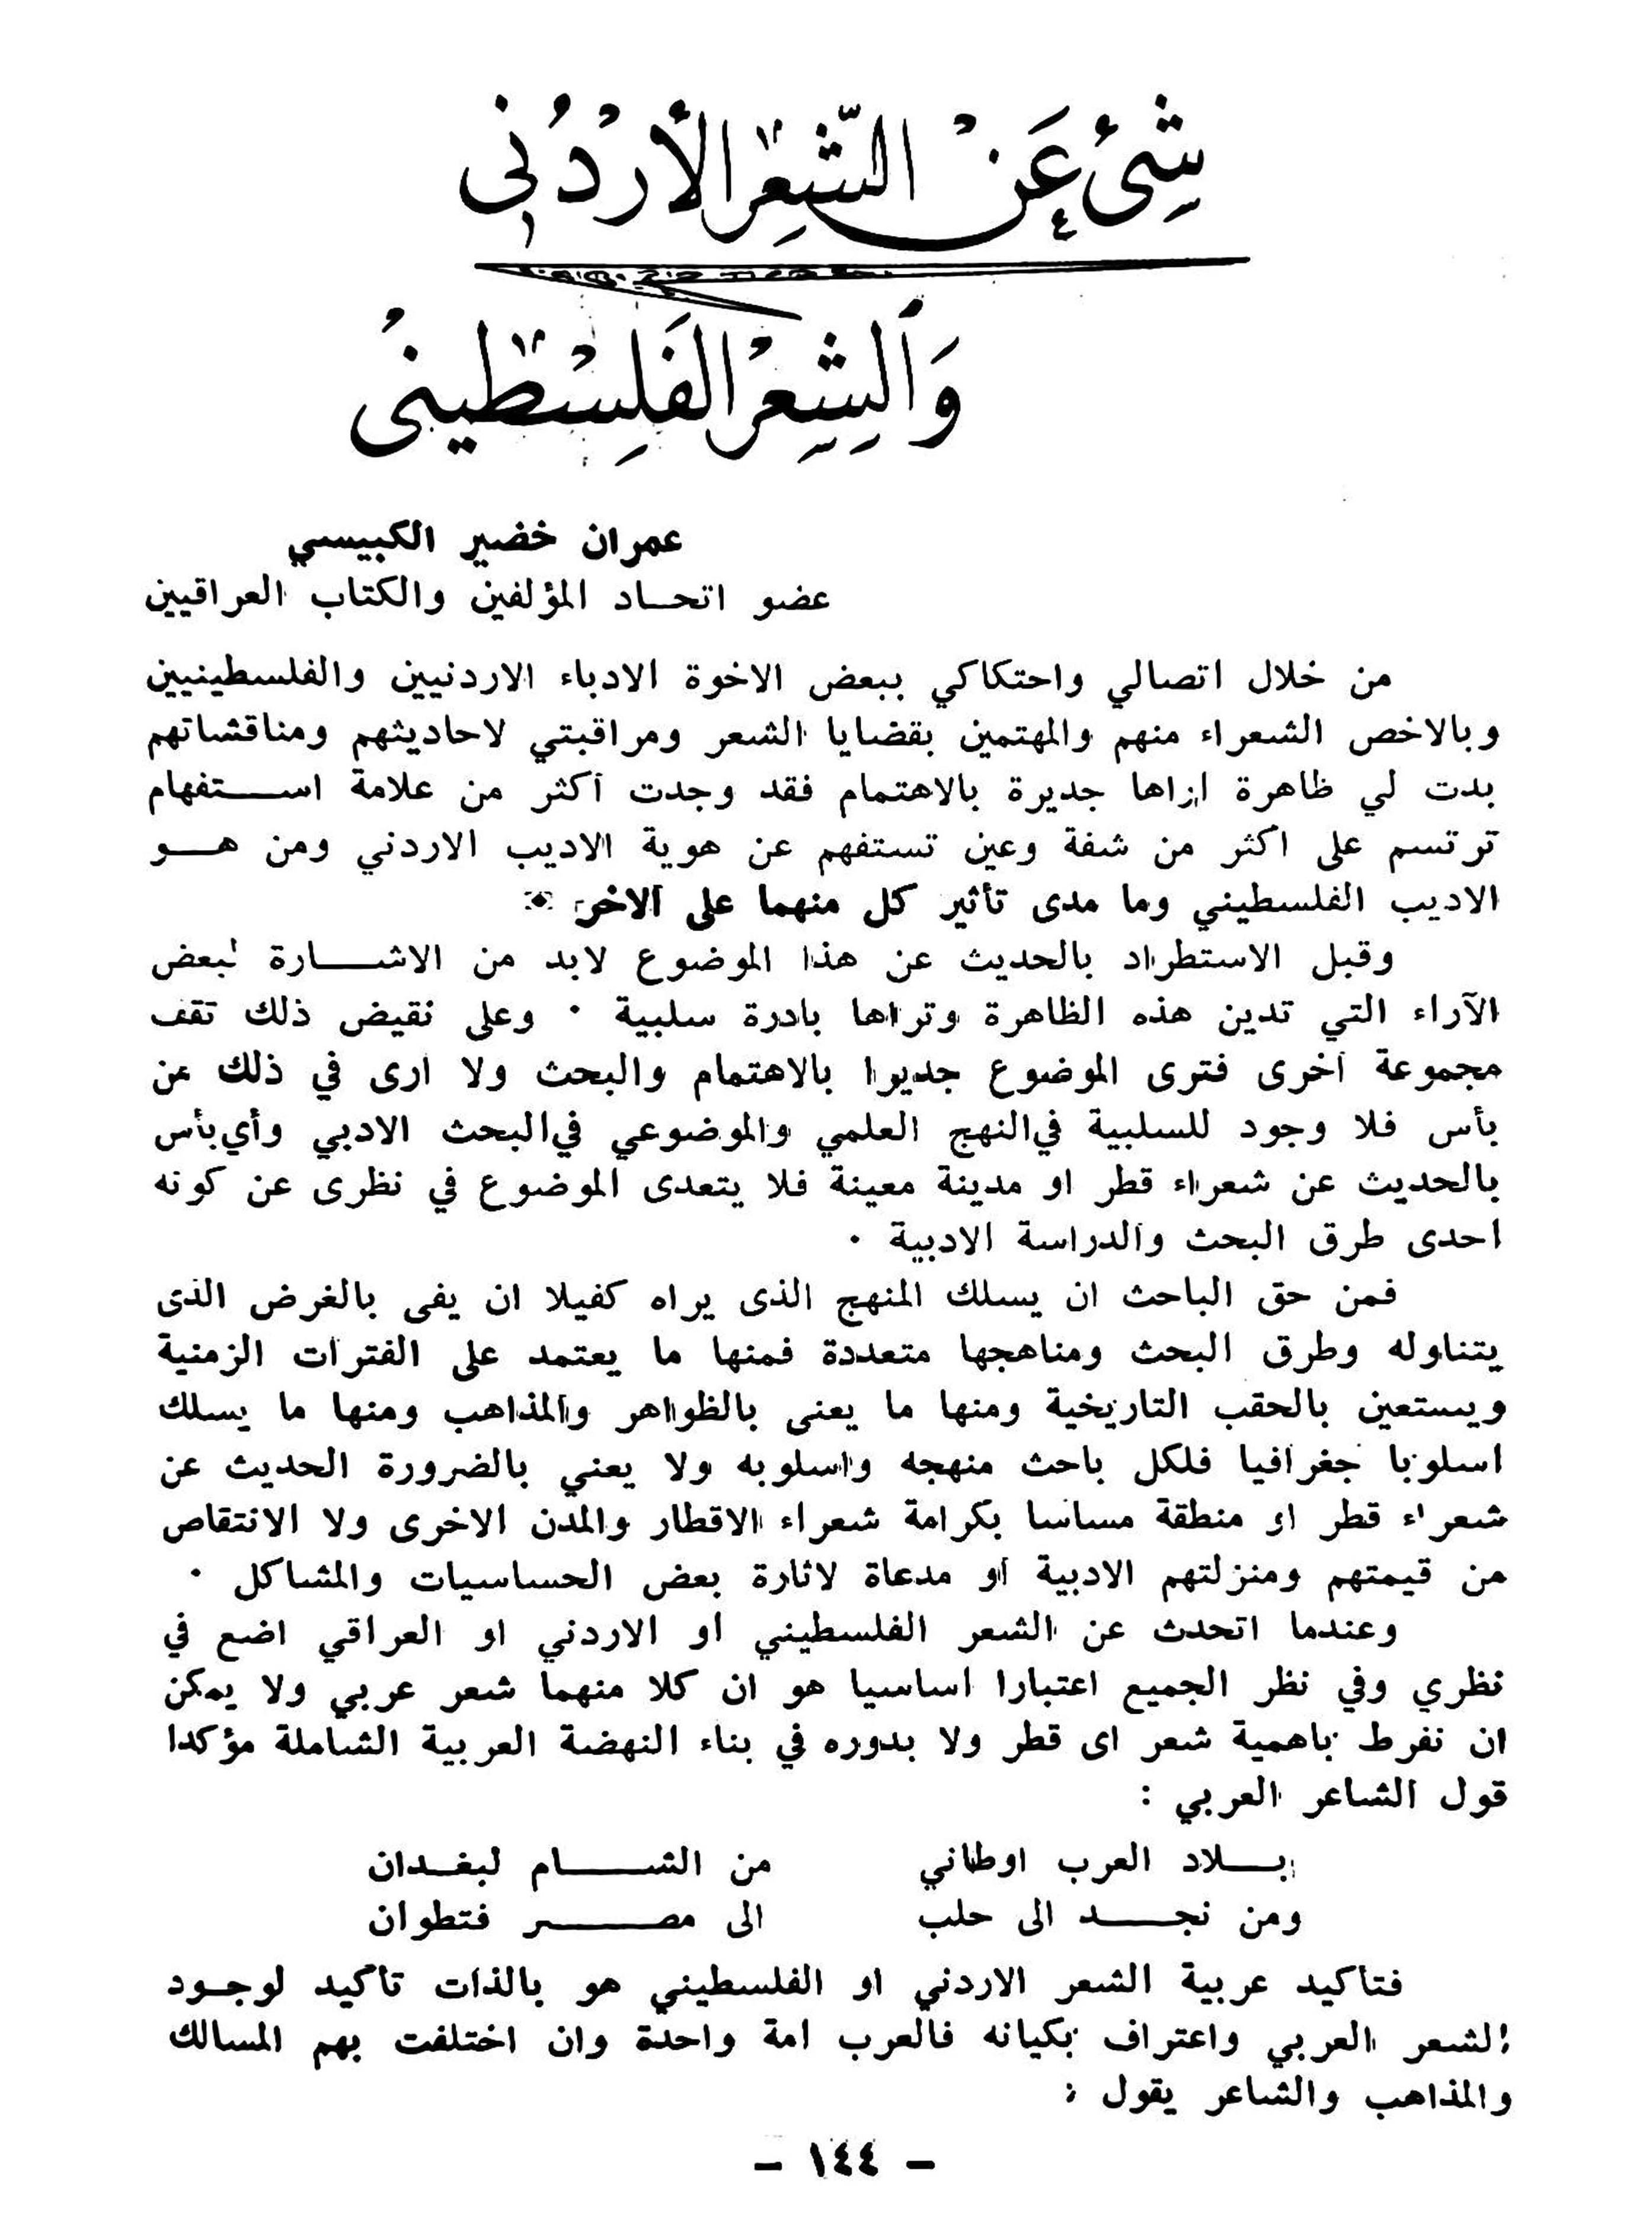 شِئ عَنْ الشِّعْرِ الأُرْدُنِي
وَالشِّعْرِ الفَلِسْطِينِي
عمران خضير الكبيسي
عضو اتحــاد المؤلفين والكتاب العراقيين
من خلال اتصالي واحتكاكي ببعض الاخوة الادباء الاردنيين والفلسطينيين
وبالاخص الشعراء منهم والمهتمين بقضايا الشعر ومراقبتي لاحاديثهم ومناقشاتهم
بدت لي ظاهرة اراها جديرة بالاهتمام فقد وجدت أكثر من علامة اســـتفهام
ترتسم على اكثر من شفة وعين تستفهم عن هوية الاديب الاردني ومن هـــو
الاديب الفلسطيني وما مدى تأثير كل منهما على الاخر
وقبل الاستطراد بالحديث عن هذا الموضوع لابد من الاشـــــارة لبعض
الآراء التي تدين هذه الظاهرة وتراها بادرة سلبية ٠ وعلى نقيض ذلك تقف
مجموعة أخرى فترى الموضوع جديرا بالاهتمام والبحث ولا ارى في ذلك من
بأس فلا وجود للسلبية في النهج العلمي والموضوعي في البحث الادبي وأي بأس
بالحديث عن شعراء قطر او مدينة معينة فلا يتعدى الموضوع في نظرى عن كونه
احدى طرق البحث والدراسة الادبية ٠
فمن حق الباحث ان يسلك المنهج الذى يراه كفيلا ان يفى بالغرض الذى
يتناوله وطرق البحث ومناهجها متعددة فمنها ما يعتمد على الفترات الزمنية
ويستعين بالحقب التاريخية ومنها ما يعنى بالظواهر والمذاهب ومنها ما يسلك
اسلوبا جغرافيا فلكل باحث منهجه واسلوبه ولا يعني بالضرورة الحديث عن
شعراء قطر او منطقة مساسا بكرامة شعراء الاقطار والمدن الاخرى ولا الانتقاص
من قيمتهم ومنزلتهم الادبية أو مدعاة لاثارة بعض الحساسيات والمشاكل ٠
وعندما اتحدث عن الشعر الفلسطيني او الاردني او العراقي اضع في
نظري وفي نظر الجميع اعتبارا اساسيا هو ان كلا منهما شعر عربي ولا يمكن
ان نفرط باهمية شعر اى قطر ولا بدوره في بناء النهضة العربية الشاملة مؤكدا
قول الشاعر العربي :
بـــلاد العرب اوطاني من الشـــــام لبغــدان
ومن نجـــــد الى حلب الى مصـــــــر فتطوان
فتأكيد عربية الشعر الاردني او الفلسطيني هو بالذات تأكيد لوجــود
الشعر العربي واعتراف بكيانه فالعرب امة واحدة وان اختلفت بهم المسالك
والمذاهب والشاعر يقول :
– ١٤٤ –